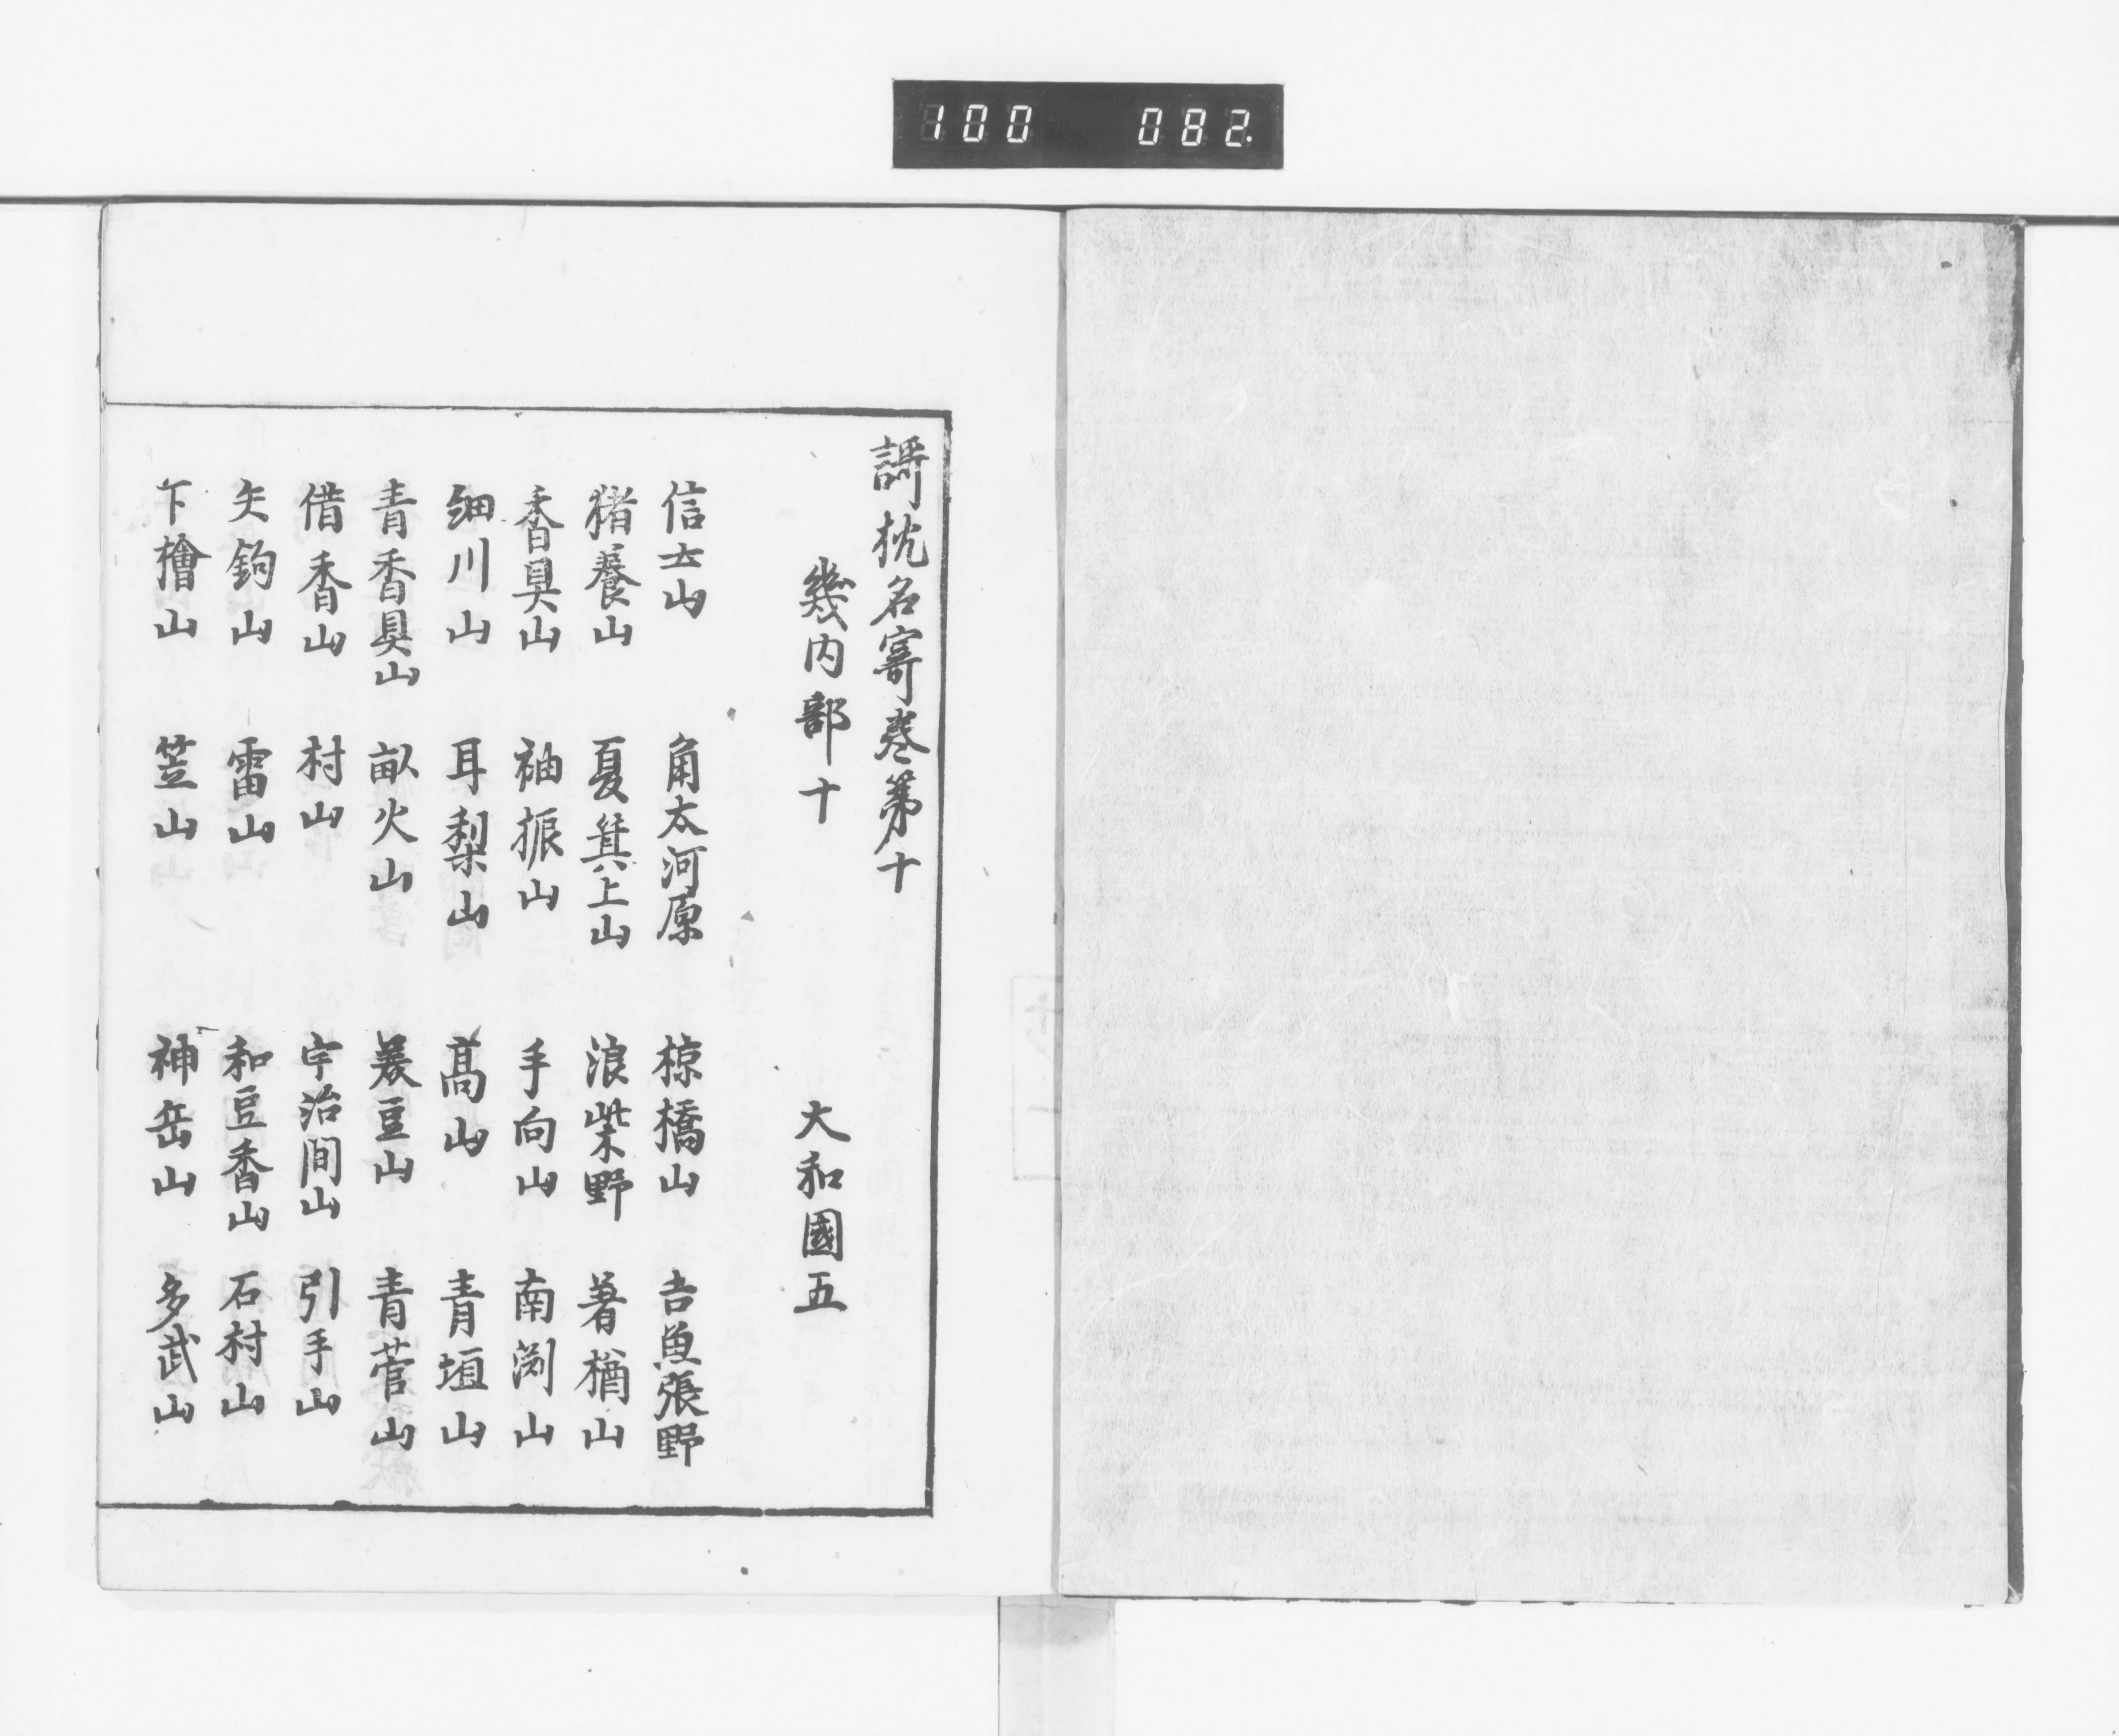 100 082.
謌枕名寄巻第十
幾内部十 大和國五
信士山 角太河原 椋橋山 吉魚張野
猪養山 夏箕上山 浪柴野 著楢山
香具山 袖振山 手向山 南渕山
細川山 耳梨山 髙山 青垣山
青香具山 畝火山 美豆山 青菅山
借香山 村山 宇治間山 引手山
矢鈎山 雷山 和豆香山 石村山
下檜山 笠山 神岳山 多武山